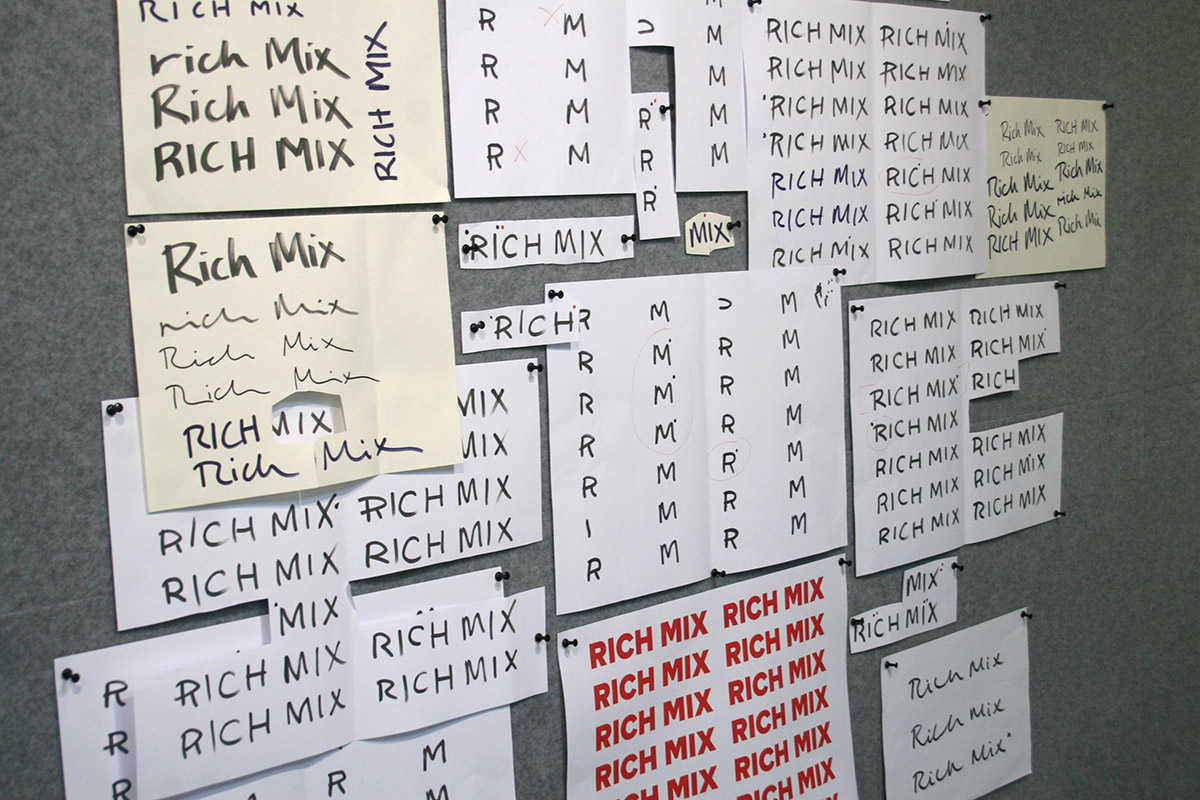 RICH MIX
rich Mix
Rich Mix
RICH MIX
RICH MIX
R M
R M
R M
R M
M
M
M
M
R
R
R
RICH MIX RICH MIX
RICH MIX RICH MIX
RICH MIX RICH MIX
RICH MIX RICH MIX
RICH MIX RICH MIX
RICH MIX RICH MIX
RICH MIX RICH MIX
Rich Mix RICH MIX
Rich Mix RICH MIX
Rich Mix Rich Mix
Rich Mix rich Mix
RICH MIX Rich Mix
RICH MIX
MIX
Rich Mix
rich Mix
Rich Mix
Rich Mix
RICH MIX
Rich Mix
MIX
MIX
RICH MIX RICH MIX
RICH MIX RICH MIX
RICH
R M M
R M R M
R M R M
R M R M
R M R M
I M R M
R M R M
RICH MIX RICH MIX
RICH MIX RICH MIX
RICH MIX RICH
RICH MIX
RICH MIX RICH MIX
RICH MIX RICH MIX
RICH MIX RICH MIX
MIX
RICH MIX RICH MIX
RICH MIX RICH MIX
R
R
R
R M
M
RICH MIX RICH MIX
RICH MIX RICH MIX
RICH MIX RICH MIX
RICH MIX RICH MIX
RICH MIX RICH MIX
MIX
RICH MIX
Rich Mix
Rich Mix
Rich Mix